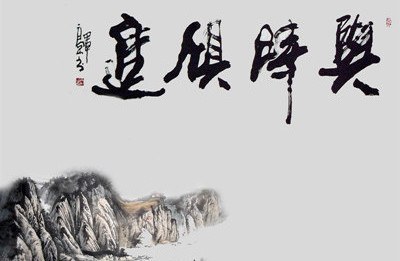 與時俱進